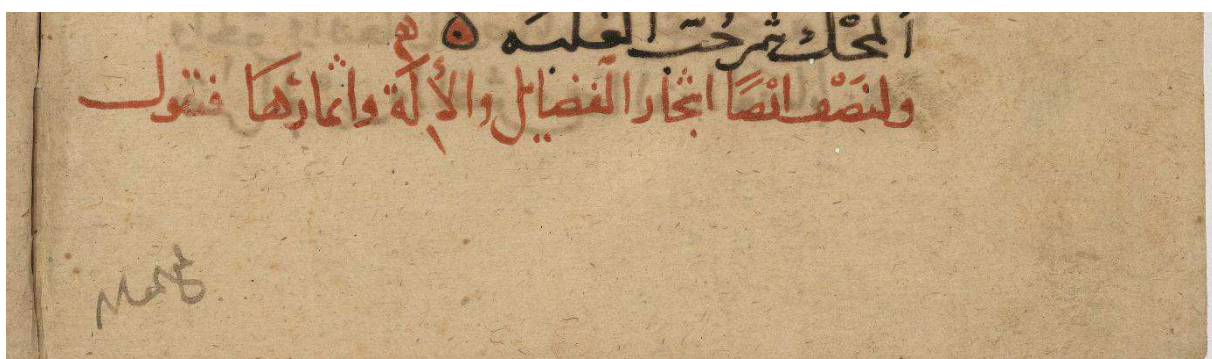 المحك ثمر حب الغلبه
ولنصف ايضًا اشجار الفضايل واثمارها فنقول